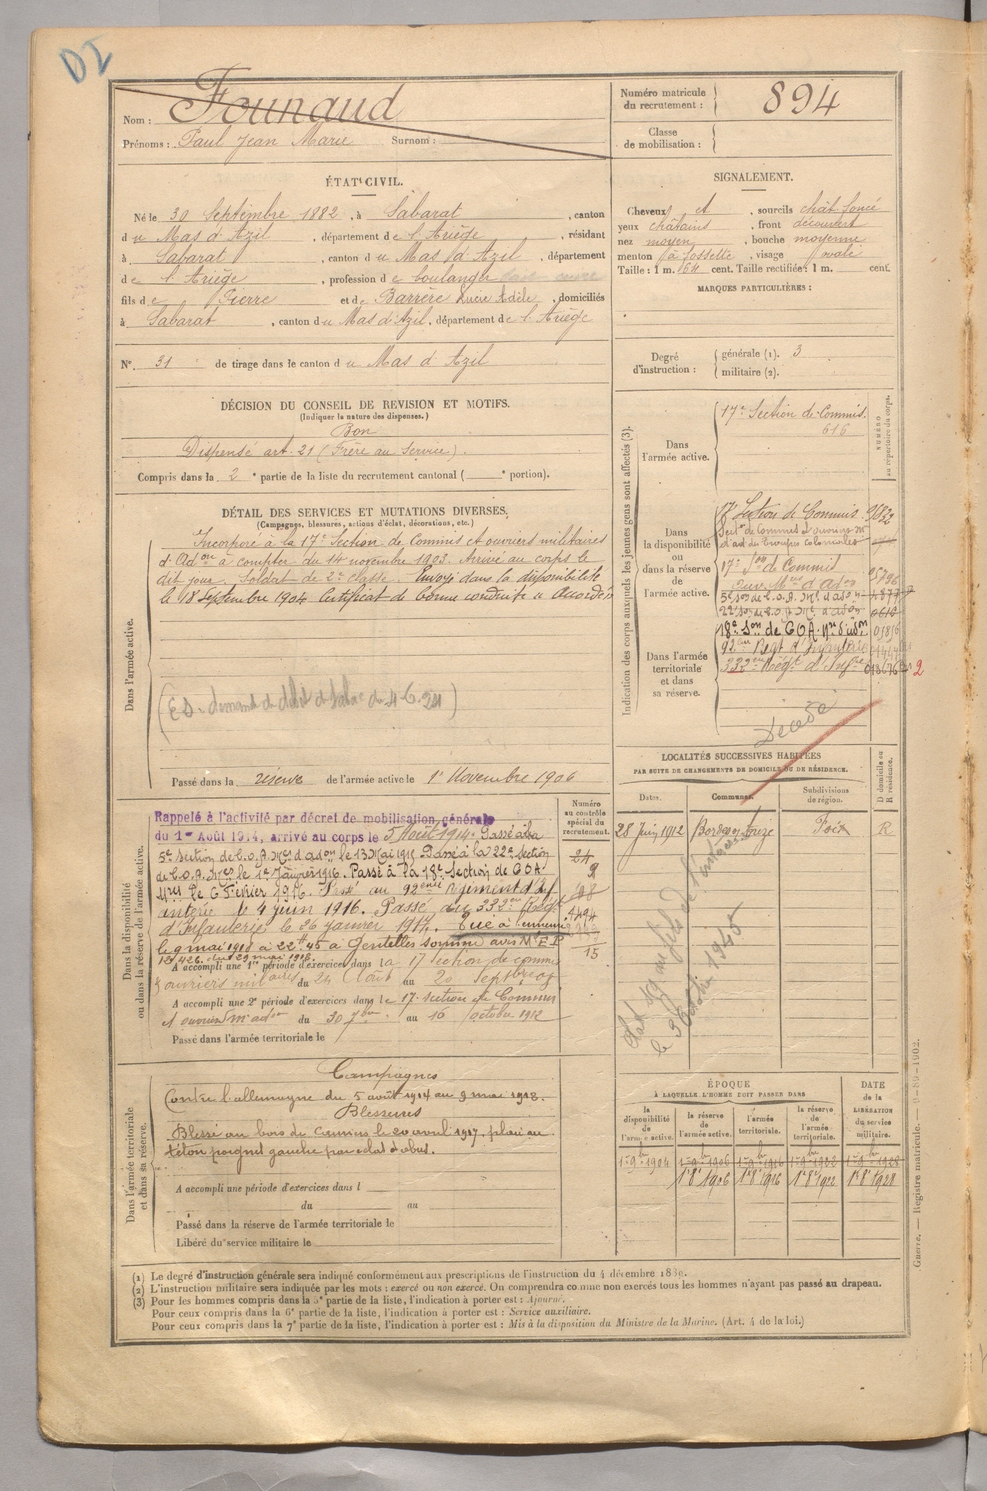 DI
Nom : Founaud
Prénoms : Paul Jean Marie Surnom :
Numéro matricule du recrutement : 894
Classe de mobilisation :
ÉTAT CIVIL.
Né le 30 Septembre 1882, à Sabarat, canton
du Mas d'Azil, département de l'Ariège, résidant
à Sabarat, canton du Mas d'Azil, département
de l'Ariège, profession de boulanger
fils de Pierre et de Barrère Lucie Adèle, domiciliés
à Sabarat, canton du Mas d'Azil, département de l'Ariège
N° 31 de tirage dans le canton du Mas d'Azil
SIGNALEMENT.
Cheveux et, sourcils chât foncé
yeux châtains, front découvert
nez moyen, bouche moyenne
menton à fossette, visage ovale
Taille : 1 m. 64 cent. Taille rectifiée : 1 m. cent.
MARQUES PARTICULIÈRES :
Degré d'instruction : générale (1). 3
militaire (2).
DÉCISION DU CONSEIL DE REVISION ET MOTIFS.
(Indiquer la nature des dispenses.)
Bon
Dispensé art. 21 (Frère au Service).
Compris dans la 2e partie de la liste du recrutement cantonal ( e portion).
DÉTAIL DES SERVICES ET MUTATIONS DIVERSES.
(Campagnes, blessures, actions d'éclat, décorations, etc.)
Dans l'armée active.
Incorporé à la 17e Section de Commis et ouvriers militaires
d'Adon à compter du 14 novembre 1903. Arrivé au corps le
dit jour. Soldat de 2e classe. Envoyé dans la disponibilité
le 18 Septembre 1904 Certificat de bonne conduite a Accordé
Passé dans la réserve de l'armée active le 1er Novembre 1906
Indication des corps auxquels les jeunes gens sont affectés (3).
NUMÉRO au répertoire du corps.
Dans l'armée active.
17e Section de Commis.
616
Dans la disponibilité ou dans la réserve de l'armée active.
17e Section de Commis
d'ad. des Troupes Coloniales
17e Son de Commis
18e Son de COA
Dans l'armée territoriale et dans sa réserve.
92me Regt d'Infanterie
332me Régt d'Infrie
2
Décédé
LOCALITÉS SUCCESSIVES HABITÉES
PAR SUITE DE CHANGEMENTS DE DOMICILE OU DE RÉSIDENCE.
Dates. Communes. Subdivisions de région. D domicile ou R résidence.
28 Juin 1912 Bordes sur Lèze Foix R
Dans la disponibilité ou dans la réserve de l'armée active.
Numéro au contrôle spécial du recrutement.
Rappelé à l'activité par décret de mobilisation générale
du 1er Août 1914, arrivé au corps le 5 Août 1914. Passé à la
5e Section de C.O.A. Mres d'adon le 13 Mai 1915. Passé à la 22e Section
de C.O.A. le 1er Janvier 1916. Passé à la 18e Section de COA
le 6 Février 1916. Passé au 92eme régiment d'Inf
anterie le 4 juin 1916. Passé au 332me Régt
d'Infanterie le 26 janvier 1917. Tué à l'ennemi
le 9 mai 1918 à 22h 45 à Gentelles somme avis M.E.P
du 29 mai 1918.
15
A accompli une 1re période d'exercices dans la 17 section de commis
ouvriers militaires du 24 Août au 20 septbre 09
A accompli une 2e période d'exercices dans la 17e section de Commis
et ouvriers Mres adon du 30 7bre au 16 octobre 1912
Passé dans l'armée territoriale le
Dans l'armée territoriale et dans sa réserve.
Campagnes
Contre l'allemagne du 5 août 1914 au 9 mai 1918.
Blessures
Blessé au bois de le 20 avril 1917, plaie au
téton poignet gauche par éclat d'obus.
A accompli une période d'exercices dans l
du au
Passé dans la réserve de l'armée territoriale le
Libéré du service militaire le
ÉPOQUE À LAQUELLE L'HOMME DOIT PASSER DANS
la disponibilité de l'armée active. la réserve de l'armée active. l'armée territoriale. la réserve de l'armée territoriale.
DATE de la LIBÉRATION du service militaire.
1er 9bre 1904 1er 9bre 1906 1er 9bre 1916 1er 9bre 1922 1er 9bre 1928
1er 8bre 1906 1er 8bre 1916 1er 8bre 1922 1er 8bre 1928
(1) Le degré d'instruction générale sera indiqué conformément aux prescriptions de l'instruction du 4 décembre 1889.
(2) L'instruction militaire sera indiquée par les mots : exercé ou non exercé. On comprendra comme non exercés tous les hommes n'ayant pas passé au drapeau.
(3) Pour les hommes compris dans la 5e partie de la liste, l'indication à porter est : Ajourné.
Pour ceux compris dans la 6e partie de la liste, l'indication à porter est : Service auxiliaire.
Pour ceux compris dans la 7e partie de la liste, l'indication à porter est : Mis à la disposition du Ministre de la Marine. (Art. 4 de la loi.)